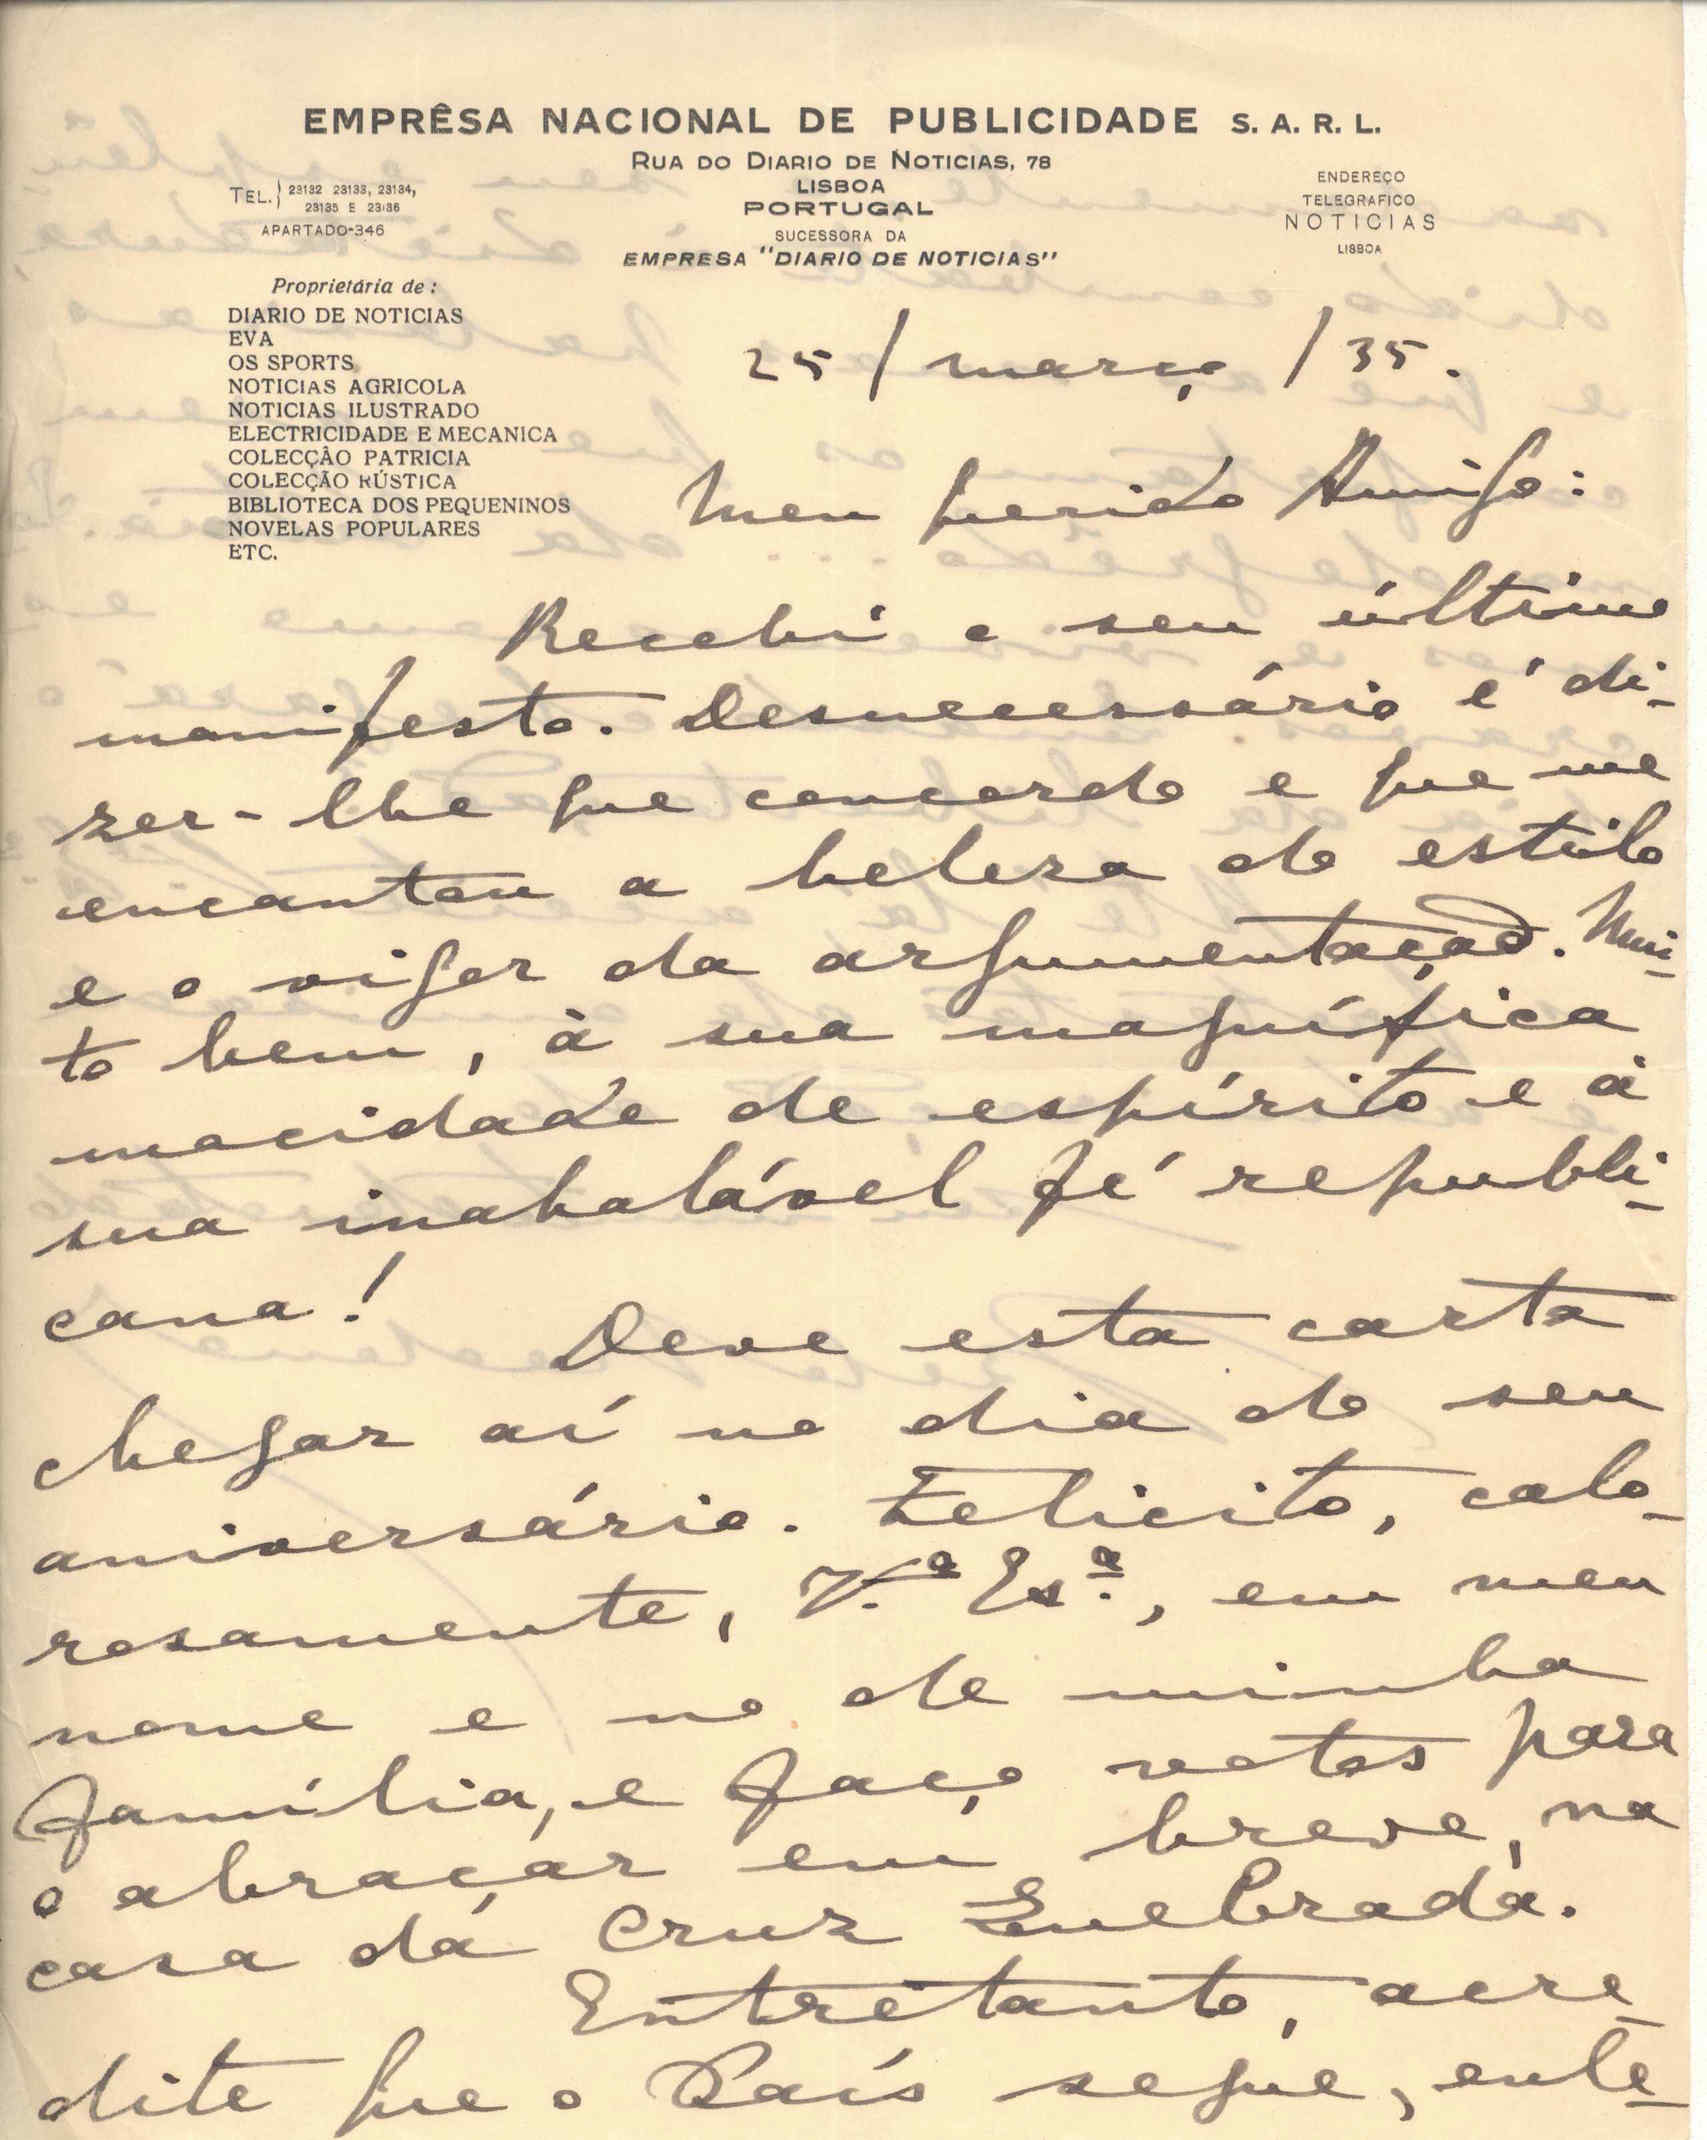 EMPRÊSA NACIONAL DE PUBLICIDADE S. A. R. L.
RUA DO DIARIO DE NOTICIAS, 78
LISBOA
PORTUGAL
SUCESSORA DA
EMPRESA "DIARIO DE NOTICIAS"
TEL. 23132 23133, 23134,
23135 E 23136
APARTADO-346
ENDEREÇO
TELEGRAFICO
NOTICIAS
LISBOA
Proprietária de:
DIARIO DE NOTICIAS
EVA
OS SPORTS
NOTICIAS AGRICOLA
NOTICIAS ILUSTRADO
ELECTRICIDADE E MECANICA
COLECÇÃO PATRICIA
COLECÇÃO RÚSTICA
BIBLIOTECA DOS PEQUENINOS
NOVELAS POPULARES
ETC.
25 / março / 35.
Meu querido Amigo:
Recebi o seu último
manifesto. Desnecessário é di-
zer-lhe que concordo e que me
encantou a beleza do estilo
e o vigor da argumentação. Mui-
to bem, à sua magnífica
mocidade de espírito e à
sua inabalável fé republi-
cana!
Deve esta carta
chegar aí no dia do seu
aniversário. Felicito, calo-
rosamente, V.ª Ex.ª, em meu
nome e no de minha
família, e faço votos para
o abraçar em breve, na
casa da Cruz Quebrada.
Entretanto, acre-
dite que o País segue, enle-